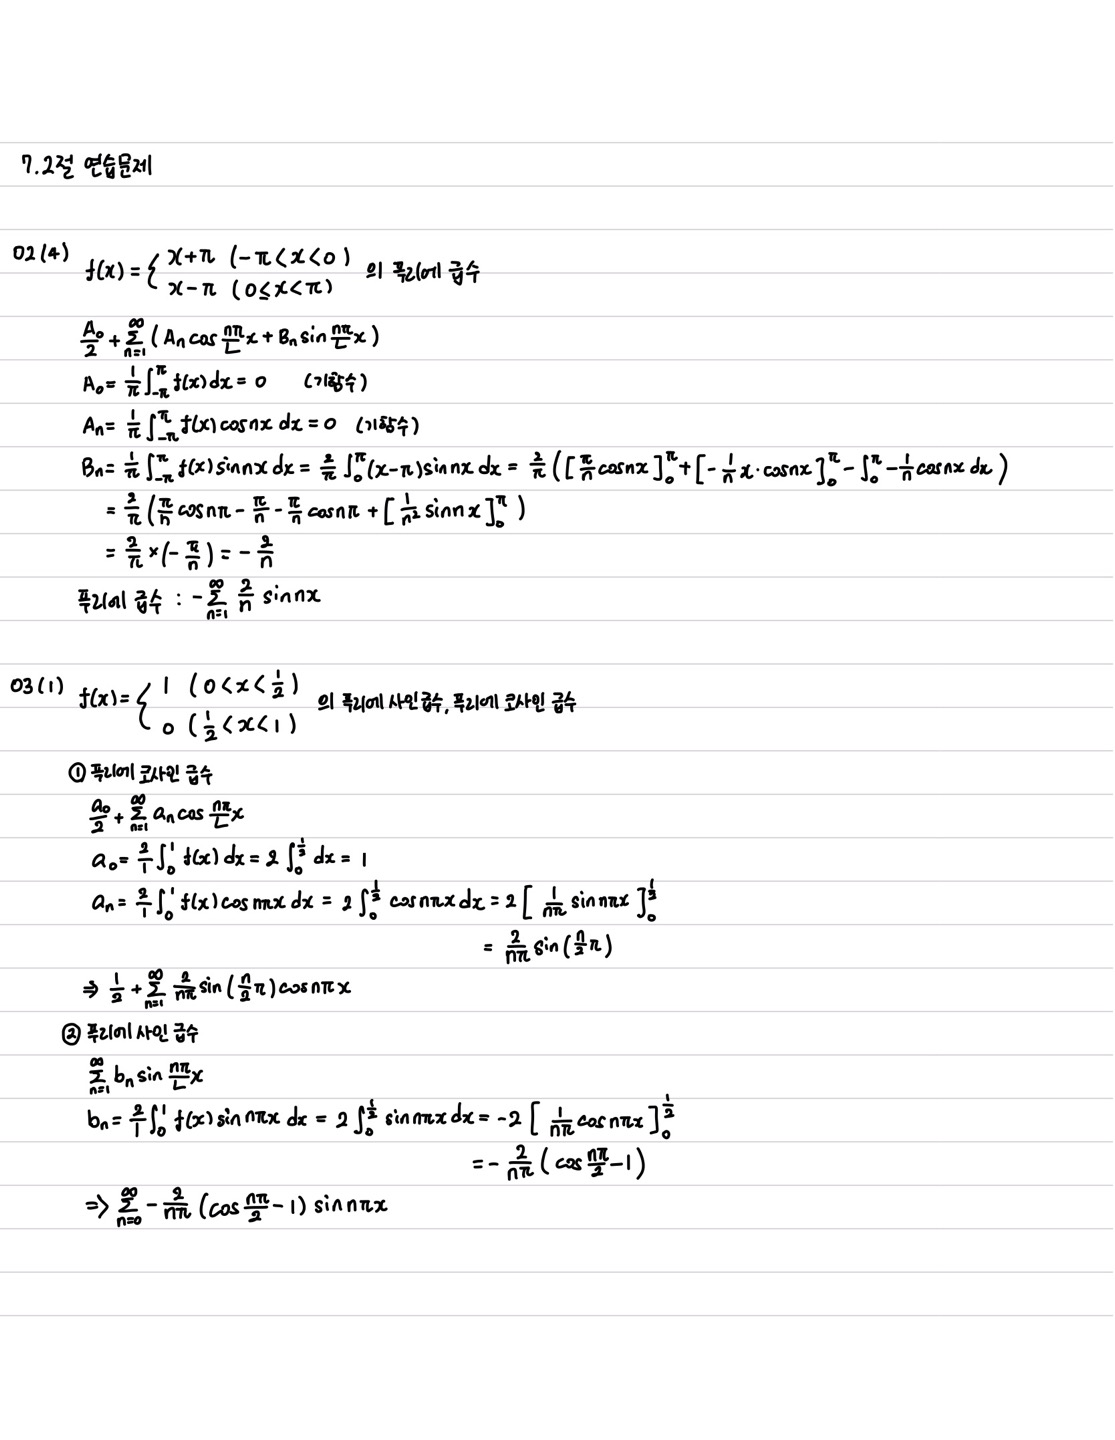 7.2절 연습문제
02(4) f(x) = { x+π (-π<x<0) 의 푸리에 급수
x-π (0≤x<π)
A₀/2 + Σ_{n=1}^{∞} ( Aₙ cos nπ/L x + Bₙ sin nπ/L x )
A₀ = 1/π ∫_{-π}^{π} f(x) dx = 0 (기함수)
Aₙ = 1/π ∫_{-π}^{π} f(x) cos nx dx = 0 (기함수)
Bₙ = 1/π ∫_{-π}^{π} f(x) sin nx dx = 2/π ∫_0^π (x-π) sin nx dx = 2/π ( [ π/n cos nx ]_0^π + [ -1/n x · cos nx ]_0^π - ∫_0^π -1/n cos nx dx )
= 2/π ( π/n cos nπ - π/n - π/n cos nπ + [ 1/n² sin nx ]_0^π )
= 2/π × (- π/n) = - 2/n
푸리에 급수 : - Σ_{n=1}^{∞} 2/n sin nx
03(1) f(x) = { 1 (0<x<1/2) 의 푸리에 사인 급수, 푸리에 코사인 급수
0 (1/2<x<1)
① 푸리에 코사인 급수
a₀/2 + Σ_{n=1}^{∞} aₙ cos nπ/L x
a₀ = 2/1 ∫_0^1 f(x) dx = 2 ∫_0^{1/2} dx = 1
aₙ = 2/1 ∫_0^1 f(x) cos nπx dx = 2 ∫_0^{1/2} cos nπx dx = 2 [ 1/nπ sin nπx ]_0^{1/2}
= 2/nπ sin ( n/2 π )
⇒ 1/2 + Σ_{n=1}^{∞} 2/nπ sin ( n/2 π ) cos nπx
② 푸리에 사인 급수
Σ_{n=1}^{∞} bₙ sin nπ/L x
bₙ = 2/1 ∫_0^1 f(x) sin nπx dx = 2 ∫_0^{1/2} sin nπx dx = -2 [ 1/nπ cos nπx ]_0^{1/2}
= - 2/nπ ( cos nπ/2 - 1 )
⇒ Σ_{n=0}^{∞} - 2/nπ ( cos nπ/2 - 1 ) sin nπx